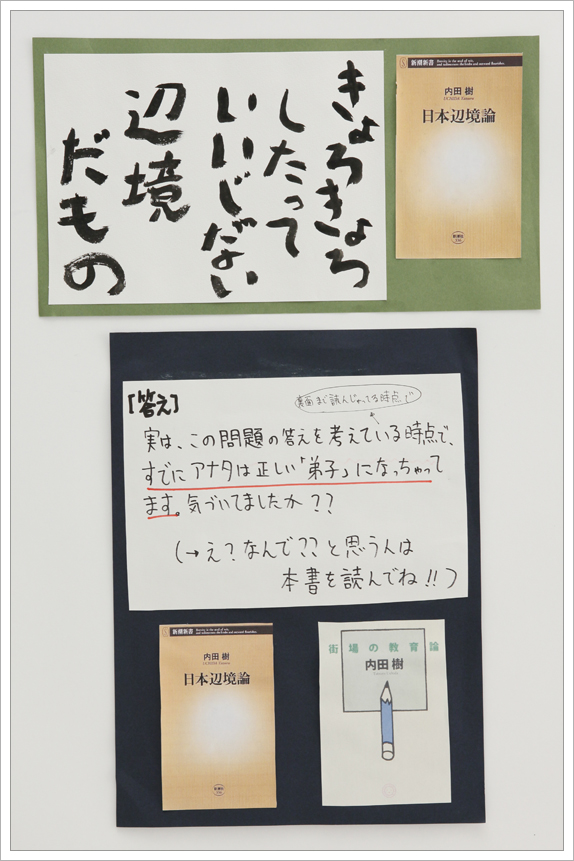 きょろきょろ
したって
いいじない
辺境
だもの
新潮新書
内田 樹
UCHIDA Tatsuru
日本辺境論
新潮社
[答え]
裏面まで読んじゃってる時点で
実は、この問題の答えを考えている時点で、
すでにアナタは正しい「弟子」になっちゃって
ます。気づいてましたか??
(→え?なんで??と思う人は
本書を読んでね!!)
新潮新書
内田 樹
UCHIDA Tatsuru
日本辺境論
新潮社
街場の教育論
内田 樹